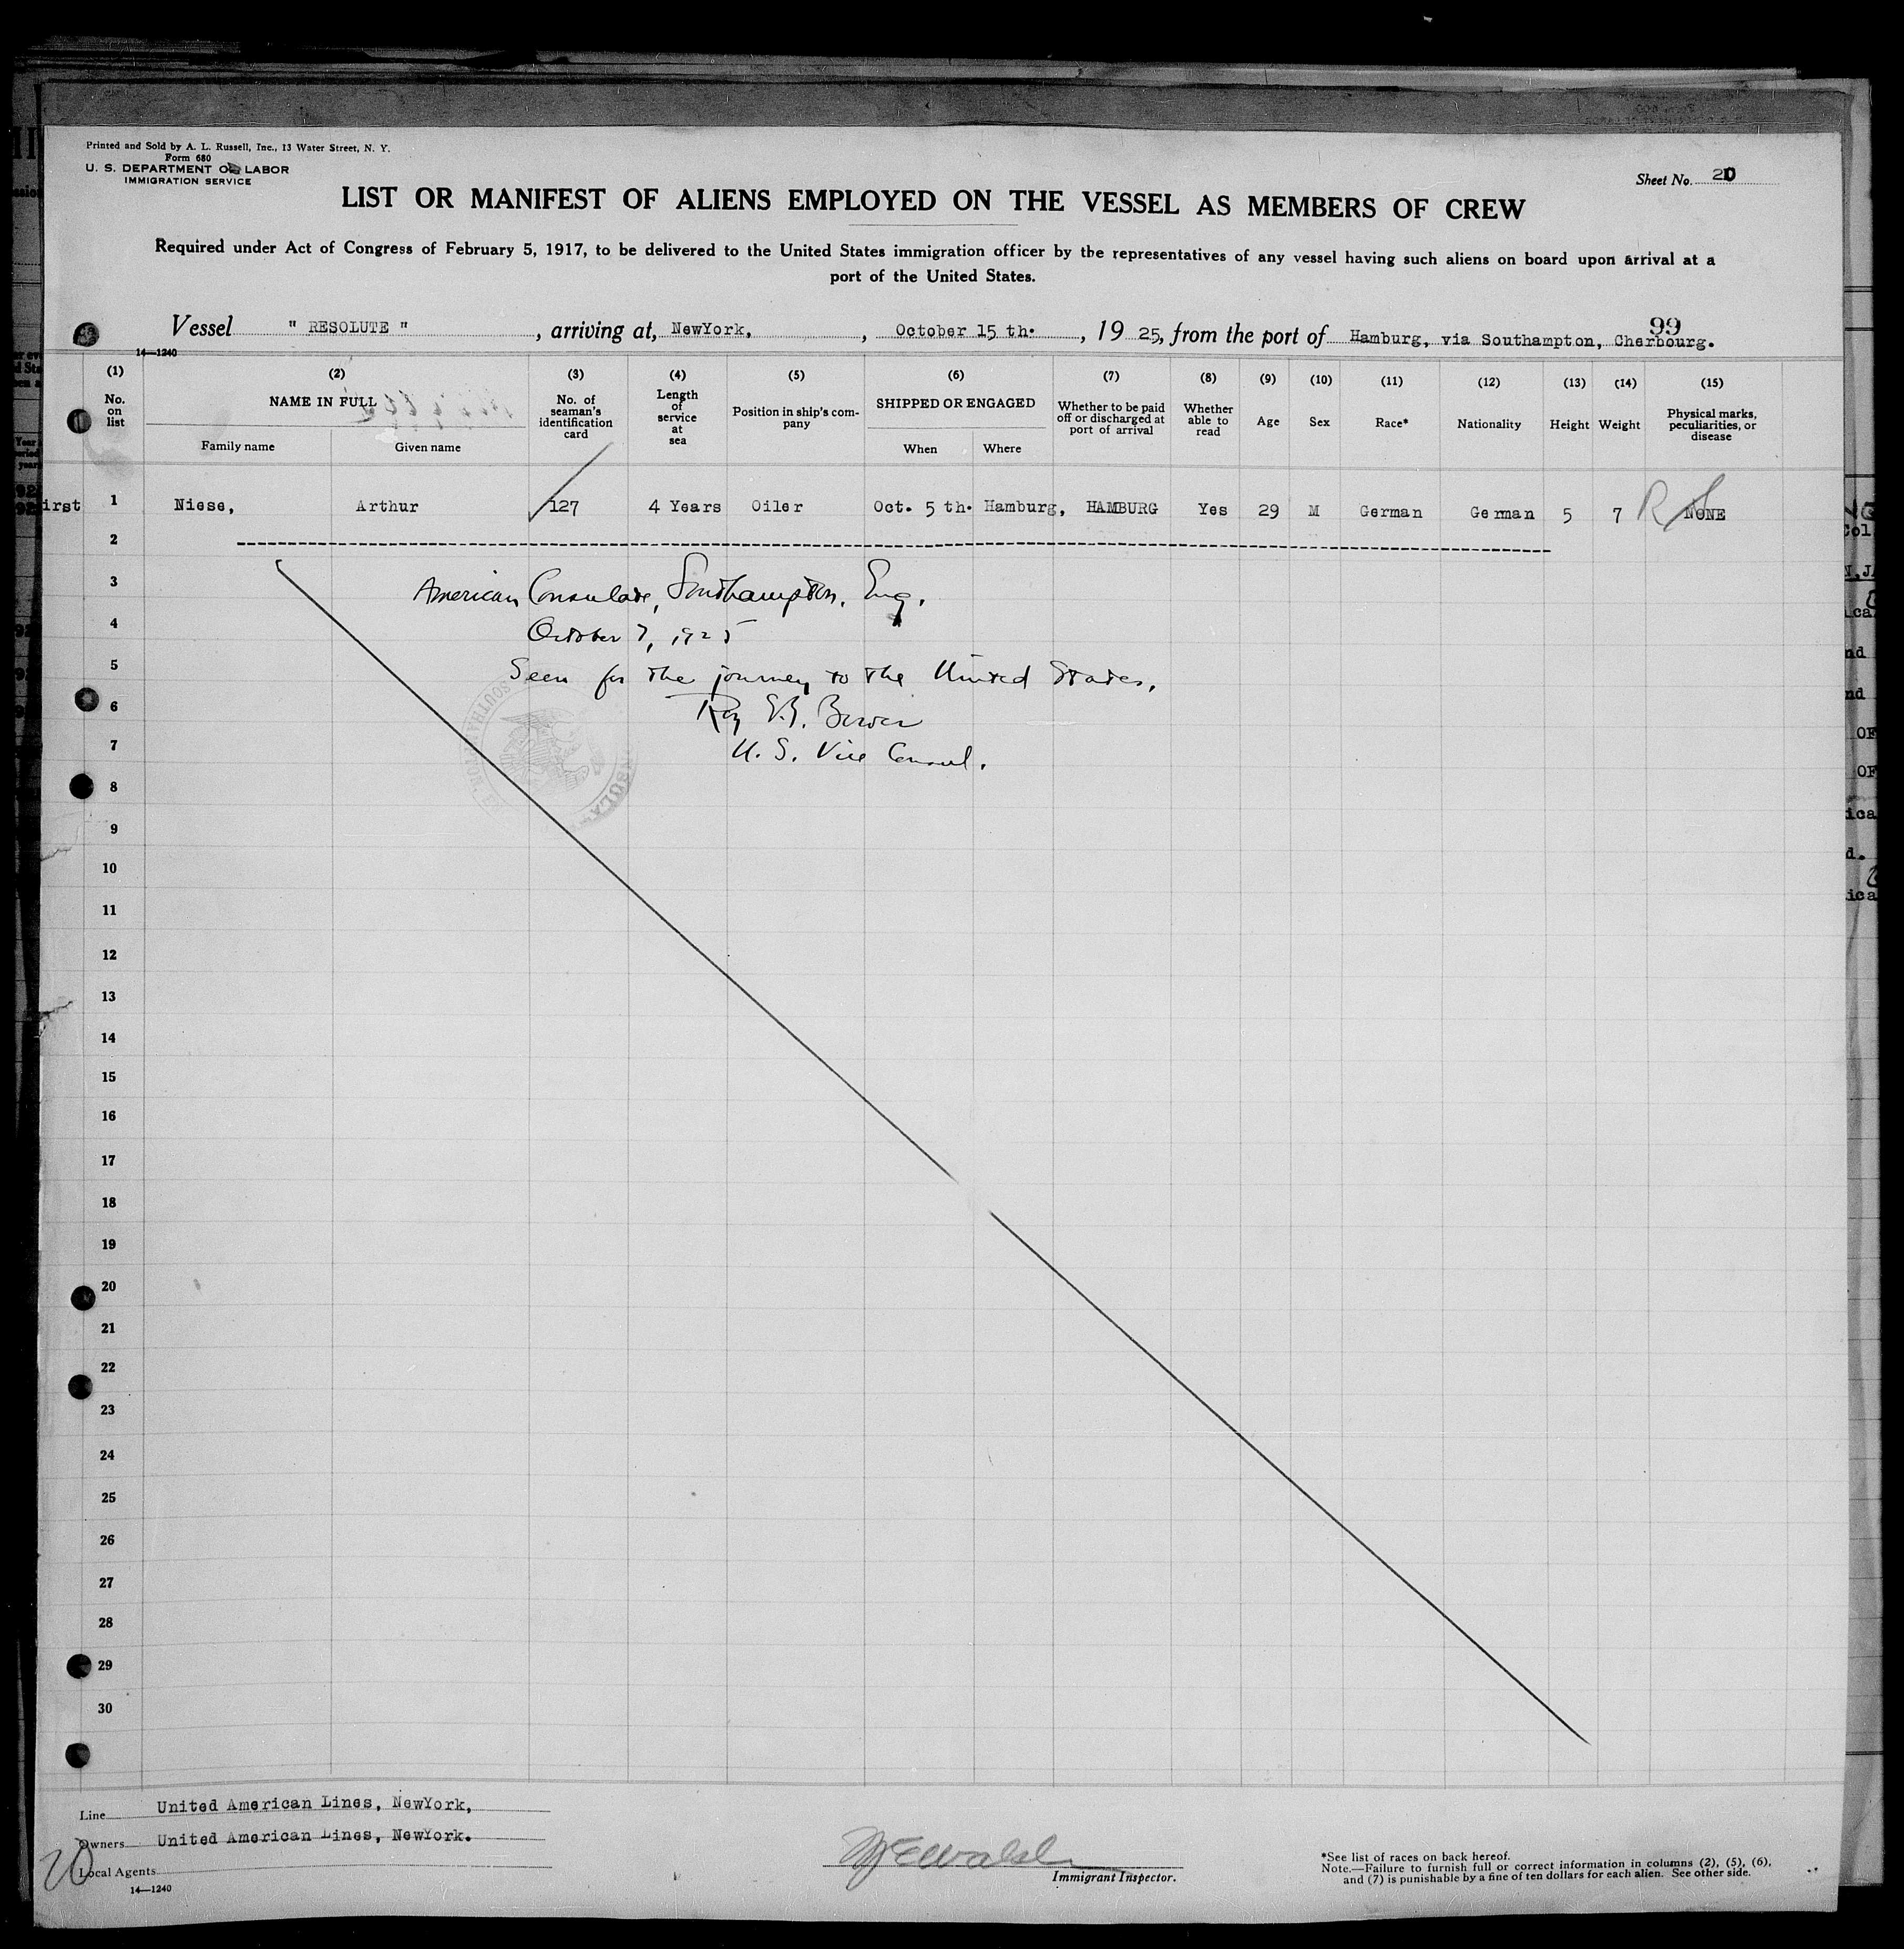 Printed and Sold by A. L. Russell, Inc., 13 Water Street, N. Y.
Form 680
U. S. DEPARTMENT OF LABOR
IMMIGRATION SERVICE
Sheet No. 20
LIST OR MANIFEST OF ALIENS EMPLOYED ON THE VESSEL AS MEMBERS OF CREW
Required under Act of Congress of February 5, 1917, to be delivered to the United States immigration officer by the representatives of any vessel having such aliens on board upon arrival at a
port of the United States.
99
Vessel " RESOLUTE " , arriving at, NewYork, , October 15 th. , 19 25, from the port of Hamburg, via Southampton, Cherbourg.
14—1240
(1) (2) (3) (4) (5) (6) (7) (8) (9) (10) (11) (12) (13) (14) (15)
No. on list
NAME IN FULL
Family name Given name
No. of seaman's identification card
Length of service at sea
Position in ship's company
SHIPPED OR ENGAGED
When Where
Whether to be paid off or discharged at port of arrival
Whether able to read
Age
Sex
Race*
Nationality
Height
Weight
Physical marks, peculiarities, or disease
irst 1 Niese, Arthur 127 4 Years Oiler Oct. 5 th. Hamburg, HAMBURG Yes 29 M German German 5 7 NONE
2
3 American Consulate, Southampton, Eng.
4 October 7, 1925
5 Seen for the journey to the United States.
6 Roy E.B. Bower
7 U. S. Vice Consul.
8
9
10
11
12
13
14
15
16
17
18
19
20
21
22
23
24
25
26
27
28
29
30
Line United American Lines, NewYork,
Owners United American Lines, NewYork.
20 Local Agents
14—1240
Walsh
Immigrant Inspector.
*See list of races on back hereof.
Note.—Failure to furnish full or correct information in columns (2), (5), (6),
and (7) is punishable by a fine of ten dollars for each alien. See other side.